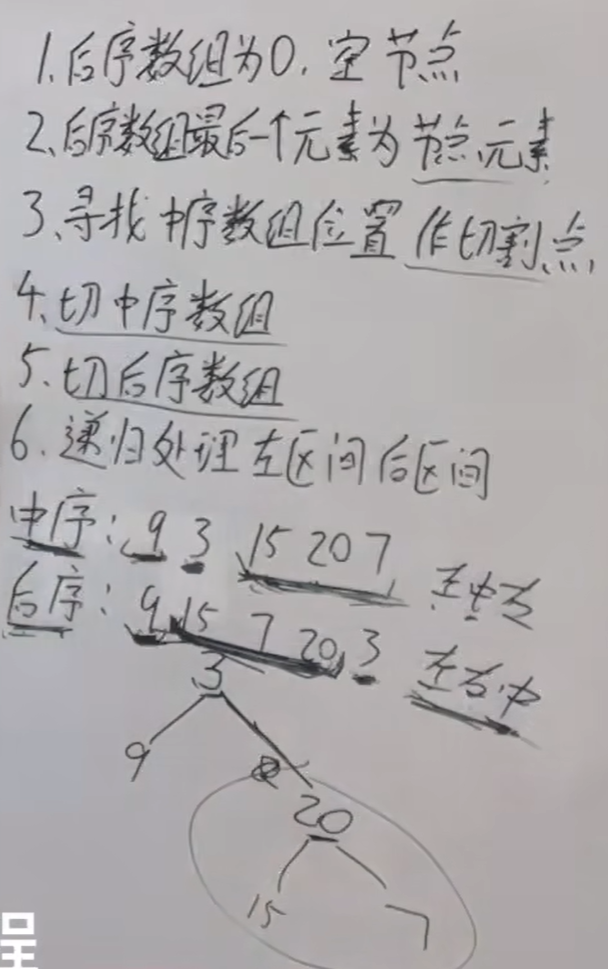 1.后序数组为0.空节点
2、后序数组最后一个元素为节点元素
3、寻找中序数组位置作切割点
4、切中序数组
5.切后序数组
6.递归处理左区间后区间
中序:9 3 15 20 7 左中右
后序:9 15 7 20 3 左右中
3
9
20
15 7
呈